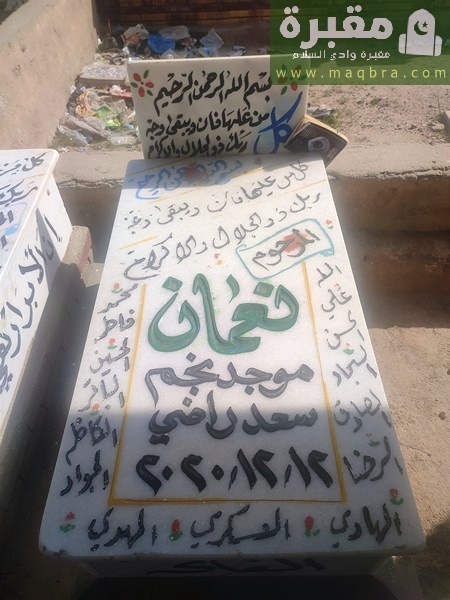 مقبرة
مقبرة وادي السلام
www.maqbra.com
بسم الله الرحمن الرحيم
كل من عليها فان ويبقى وجه
ربك ذو الجلال والاكرام
بسم الله الرحمن الرحيم
كل من عليها فان ويبقى وجه
ربك ذو الجلال والاكرام
المرحوم
نعمان
موجد نجم
سعد راضي
٢٠٢٠/١٢/١٢
الله علي حسن السجاد الصادق الرضا
محمد فاطمة حسين الباقر الكاظم الجواد
الهادي العسكري المهدي